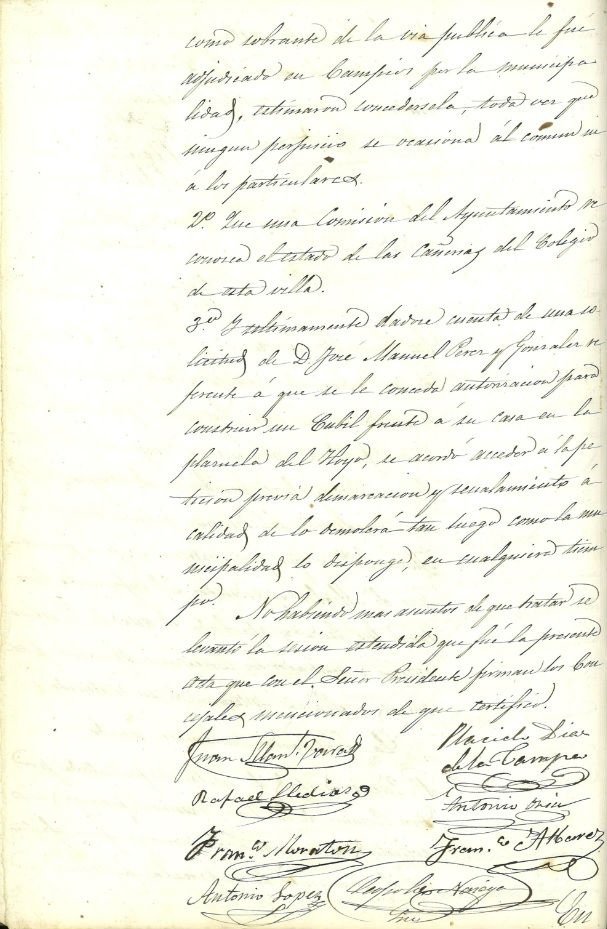 como sobrante de la via publica le fué
adjudicado en Campios por la municipa
lidad, estimaron concedersela, toda vez que
ningun perjuicio se ocasiona ál comun ni
á los particulares.
2º. Que una Comision del Ayuntamiento re
conozca el estado de las Cañerias del Colegio
de esta villa.
3º Y ultimamente dadose cuenta de una so
licitud de D. José Manuel Perez y Gonzalez re
ferente á que se le conceda autorizacion para
construir un Cubil frente á su casa en la
plazuela del Hoyo, se acordó acceder á la pe
ticion previa demarcacion y señalamiento á
calidad de lo demolerá tan luego como la mu
nicipalidad lo disponga, en cualquiera tiem
po.
No habiendo mas asuntos de que tratar se
levantó la sesion estendida que fué la presente
acta que con el Señor Presidente firman los Con
cejales mencionados de que certifico.
Juan
Placido Diaz
de la Campa
Rafael
Antonio
Franco. Moraton
Franco. Alvarez
Antonio Lopez
En